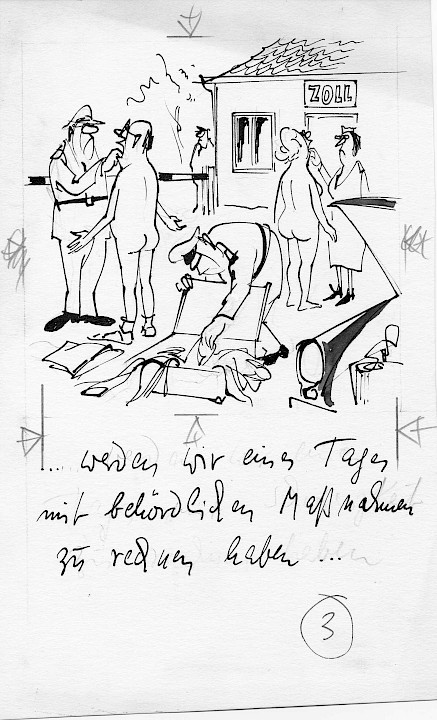 ZOLL
... werden wir eines Tages
mit behördlichen Maßnahmen
zu rechnen haben ...
3